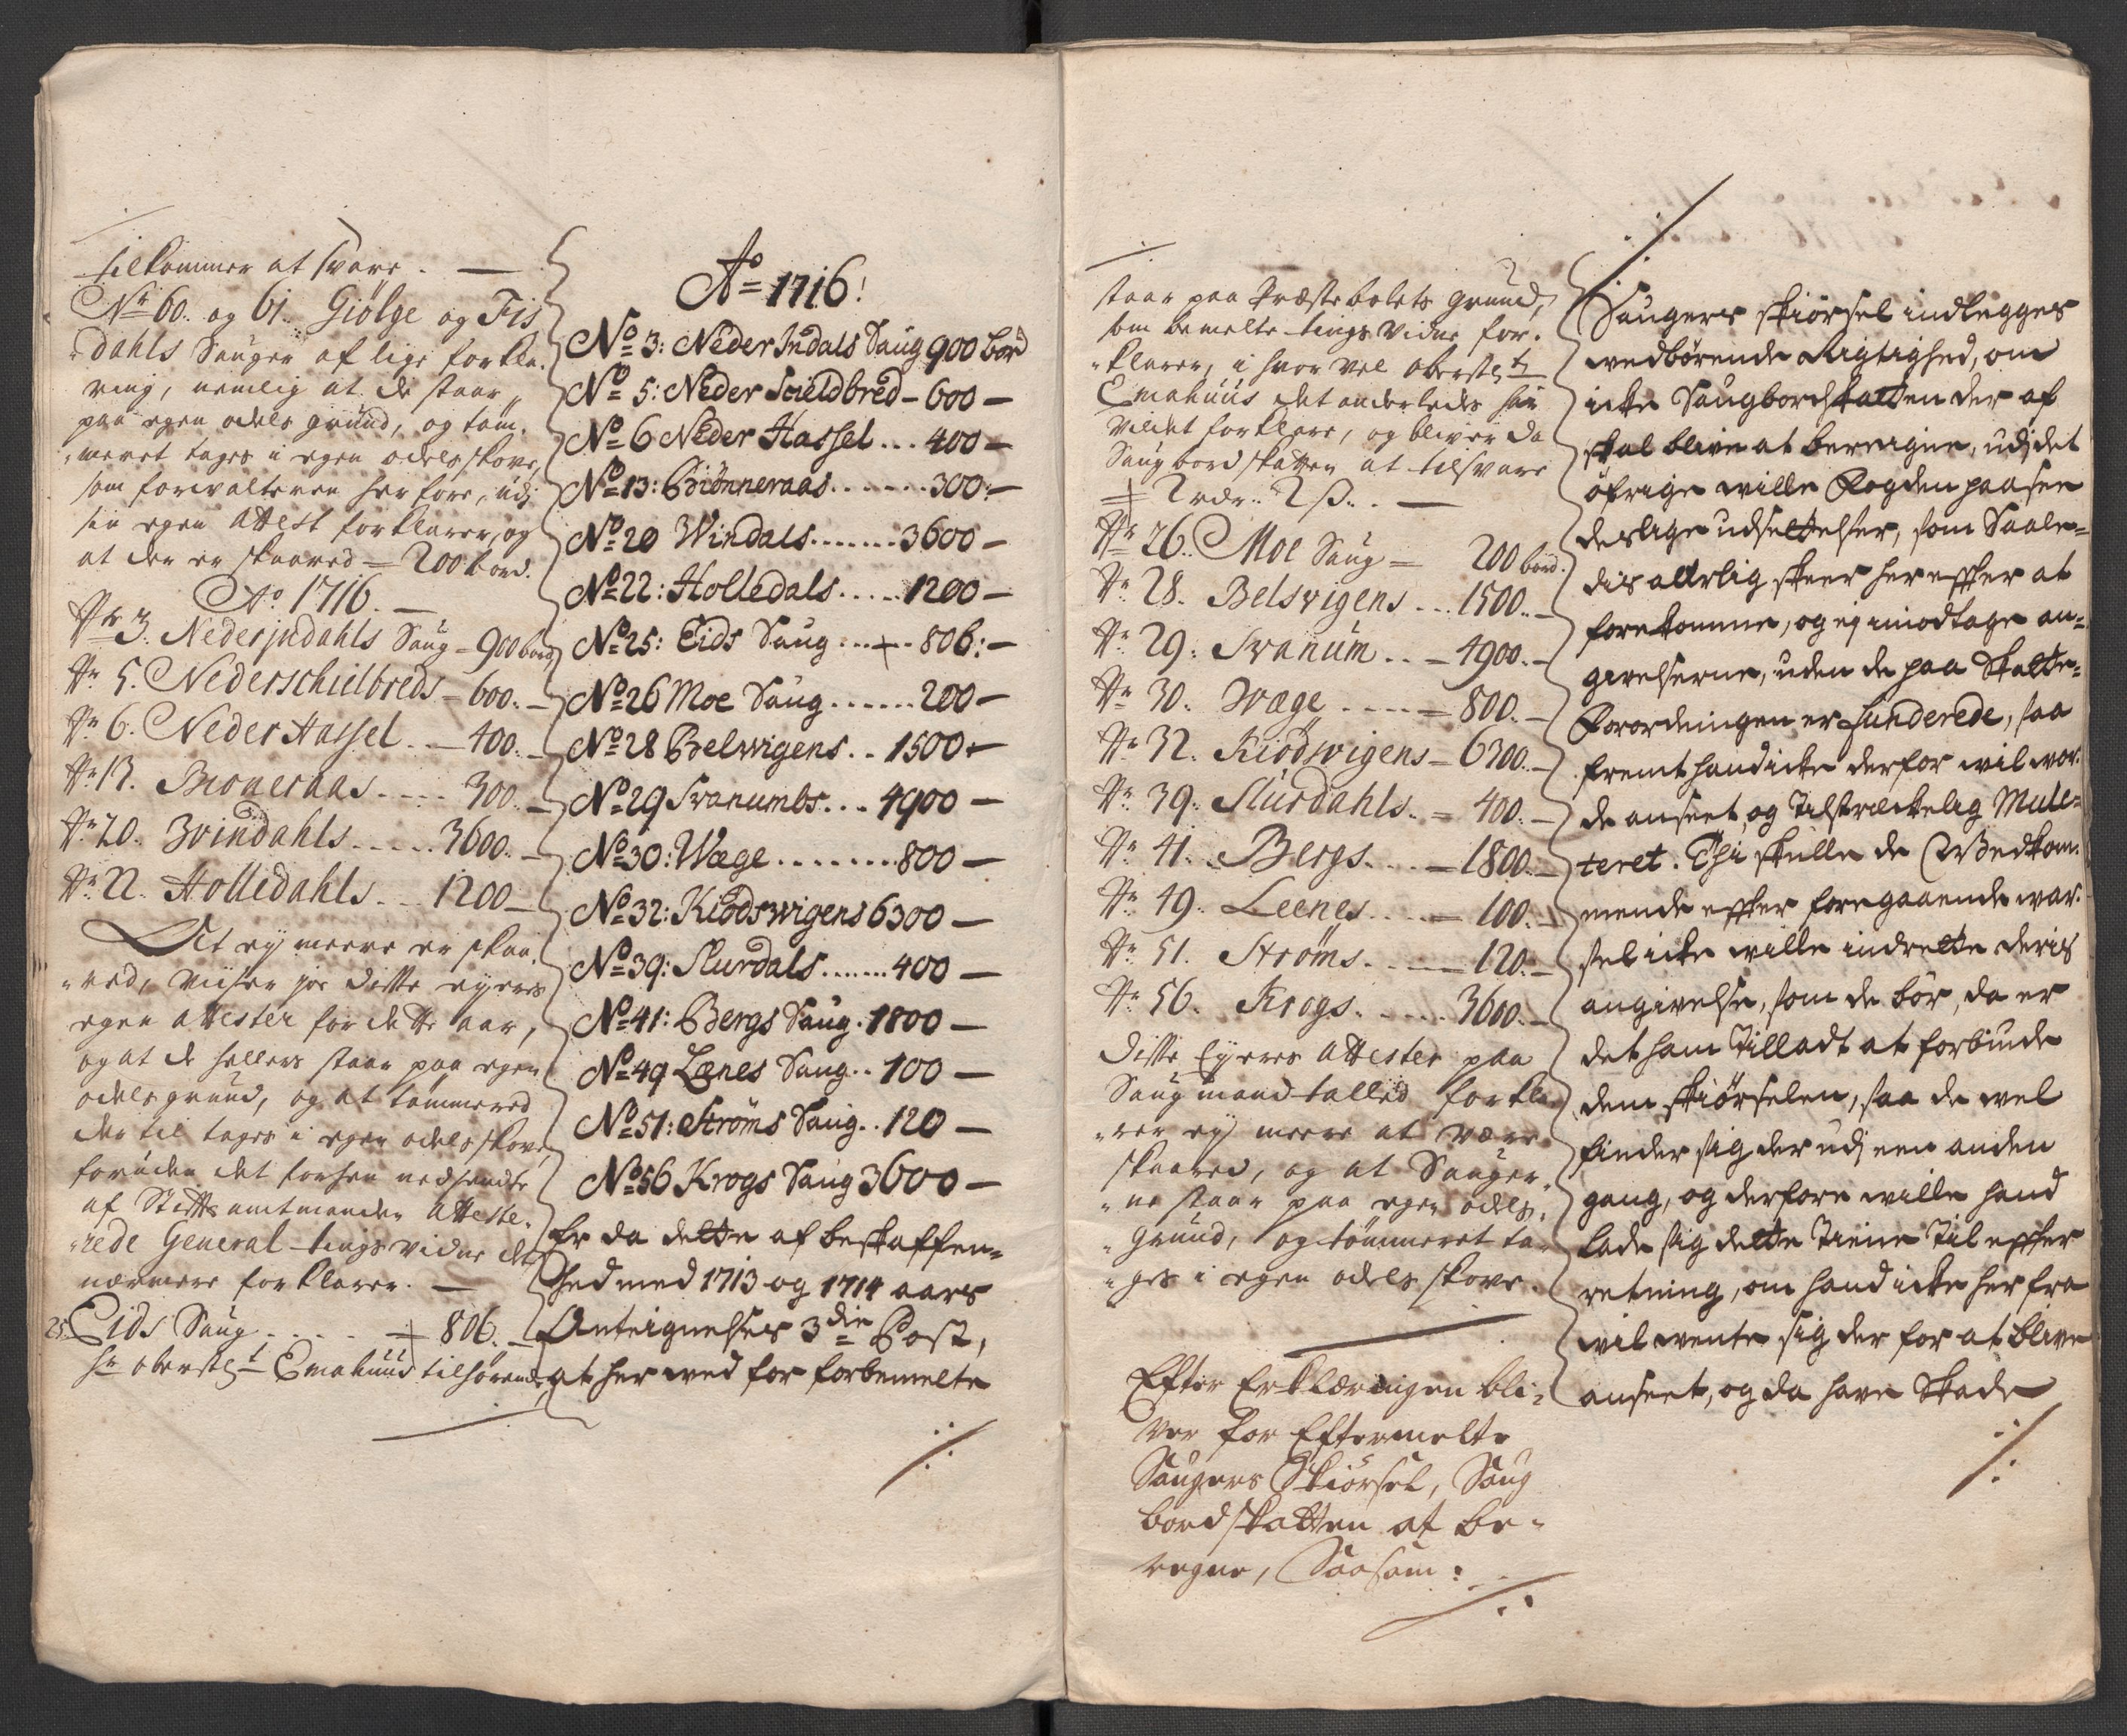 tilkommer at svare. —
Nr 60. og 61. Giølge og Fis
dahls Sauger af lige forkla-
ring, nemlig at de staar
paa egen odels grund, og tøm-
meret tages i egen odels skove,
som forvalteren her fore, udj
sin egen Attest forklarer, og
at der er skaared = 200 bord.
Ao 1716. —
Nr 3. Nederjndahls Saug = 900 bord
Nr 5. Nederschielbreds = 600. —
Nr 6. Neder Hassel . . — 400. —
Nr 13. Brøneraas . . . . 300. —
Nr 20. Windahls . . . . . 3600. —
Nr 22. Holledahls . . . 1200 —
At ey meere er skaa-
red, viiser jo disse eyeres
egen Attester for dette aar,
og at de hellers staar paa egen
odels grund, og at tømmered
der til tages i egen odels skove,
foruden det forhen nedsendte
af Stiftamtmanden Atteste-
rede General tingsvidne det
nærmere forklarer. —
25. Eids Saug . . . . . 806. —
Hr oberstl:t Emahuus tilhørende,
Ao 1716!
No 3: Neder Indals Saug 900 bord
No 5: Neder Scieldbred – 600 —
No 6 Neder Hassel . . . 400 —
No 13: Brönneraas . . . . . . . 300: —
No 20 Windals . . . . . . . 3600 —
No 22: Holledals . . . . . 1200 —
No 25: Eids Saug . . . . . 806: —
No 26 Moe Saug . . . . . . 200 —
No 28 Belswigens . . 1500 —
No 29 Svanumbs . . . 4900 —
No 30: Wæge . . . . . . . . 800 —
No 32: Kiödswigens 6300 —
No 39: Slurdals . . . . . . . 400 —
No 41: Bergs Saug . 1800 —
No 49 Lænes Saug . . 100 —
No 51: Ströms Saug . . 120 —
No 56 Krogs Saug 3600 —
Er da dette af beskaffen-
hed med 1713 og 1714 aars
Anteignelses 3die Post,
at her ved for forbemelte
staar paa Præstebolets grund,
som bemelte tings vidne for-
klarer, i hvor vel oberstl:t
Emahuus det anderledes har
villet forklare, og bliver da
Saugbordskatten at tilsvare
= 2 rdr: 2 s. . —
Nr 26. Moe Saug = 200 bord.
Nr 28. Belsvigens . . . 1500. —
Nr 29. Svanum . . — 4900. —
Nr 30. Wæge . . . . = 800. —
Nr 32. Kiödsvigens = 6300. —
Nr 39. Slurdahls . = 400. —
Nr 41. Bergs . . . . = 1800. —
Nr 49. Leenes . . . . = 100. —
Nr 51. Strøms . . . — 120. —
Nr 56. Krogs . . . . . 3600. —
Disse Eyeres Attester paa
Saugmandtalled forkla-
rer ey meere at være
skaared, og at Sauger-
ne staar paa egen odels
grund, og tømmeret ta-
ges i egen odels skove.
Efter Erklæringen bli-
ver for Eftermelte
Saugers Skiørsel, Saug
bordskatten at be-
regne, Saasom:
Saugers skiörsel indlegges
wedbörende Rigtighed, om
icke Saugbordskatten der af
skal blive at beregne, udj det
öfrige wille Fogden paasee
deslige udsettelser, som Saale-
dis aarlig skeer her effter at
forekomme, og ej imodtage an-
givelserne, uden de paa Skatte-
Forordningen er funderede, saa
fremt hand icke derfor wil wor-
de anseet, og Tilstreckelig Mulc-
teret. Thi skulle de Wedkom-
mende effter foregaaende war-
sel icke wille indrette deris
angivelse, som de bör, da er
det ham Tilladt at forbiude
dem skiörselen, saa de wel
finder sig der udj een anden
gang, og derfore wille hand
lade sig dette Tiene Til effter
retning, om hand icke her fra
wil wente sig der for at blive
anseet, og da have Skade